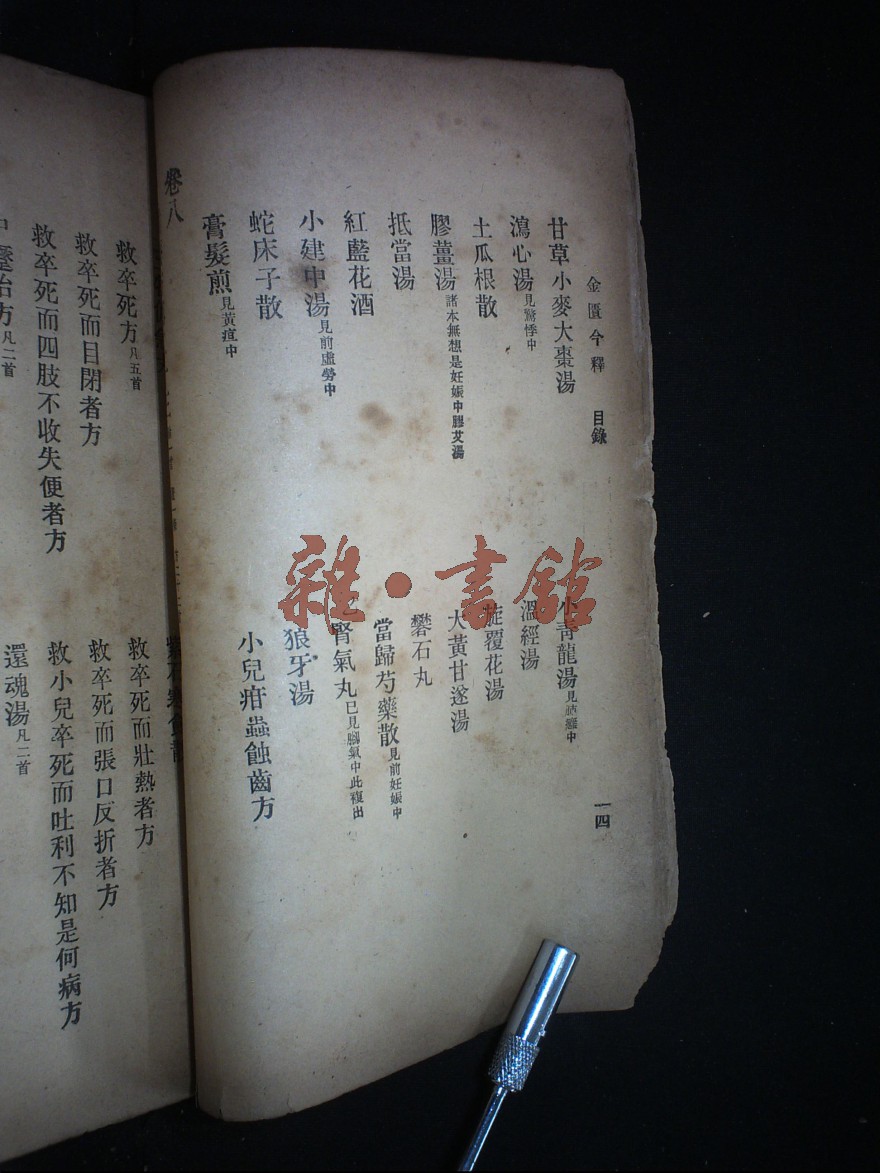 金匱今釋 目錄 一四
甘草小麥大棗湯
小青龍湯見
瀉心湯見驚悸中
溫經湯
土瓜根散
旋覆花湯
膠薑湯諸本無想是妊娠中膠艾湯
大黃甘遂湯
抵當湯
礬石丸
紅藍花酒
當歸芍藥散見前妊娠中
小建中湯見前虛勞中
腎氣丸已見腳氣中此複出
蛇床子散
狼牙湯
膏髮煎見黃疸中
小兒疳蟲蝕齒方
卷八
救卒死方凡五首
救卒死而壯熱者方
救卒死而目閉者方
救卒死而張口反折者方
救卒死而四肢不收失便者方
救小兒卒死而吐利不知是何病方
治方凡二首
還魂湯凡二首
雜·書館